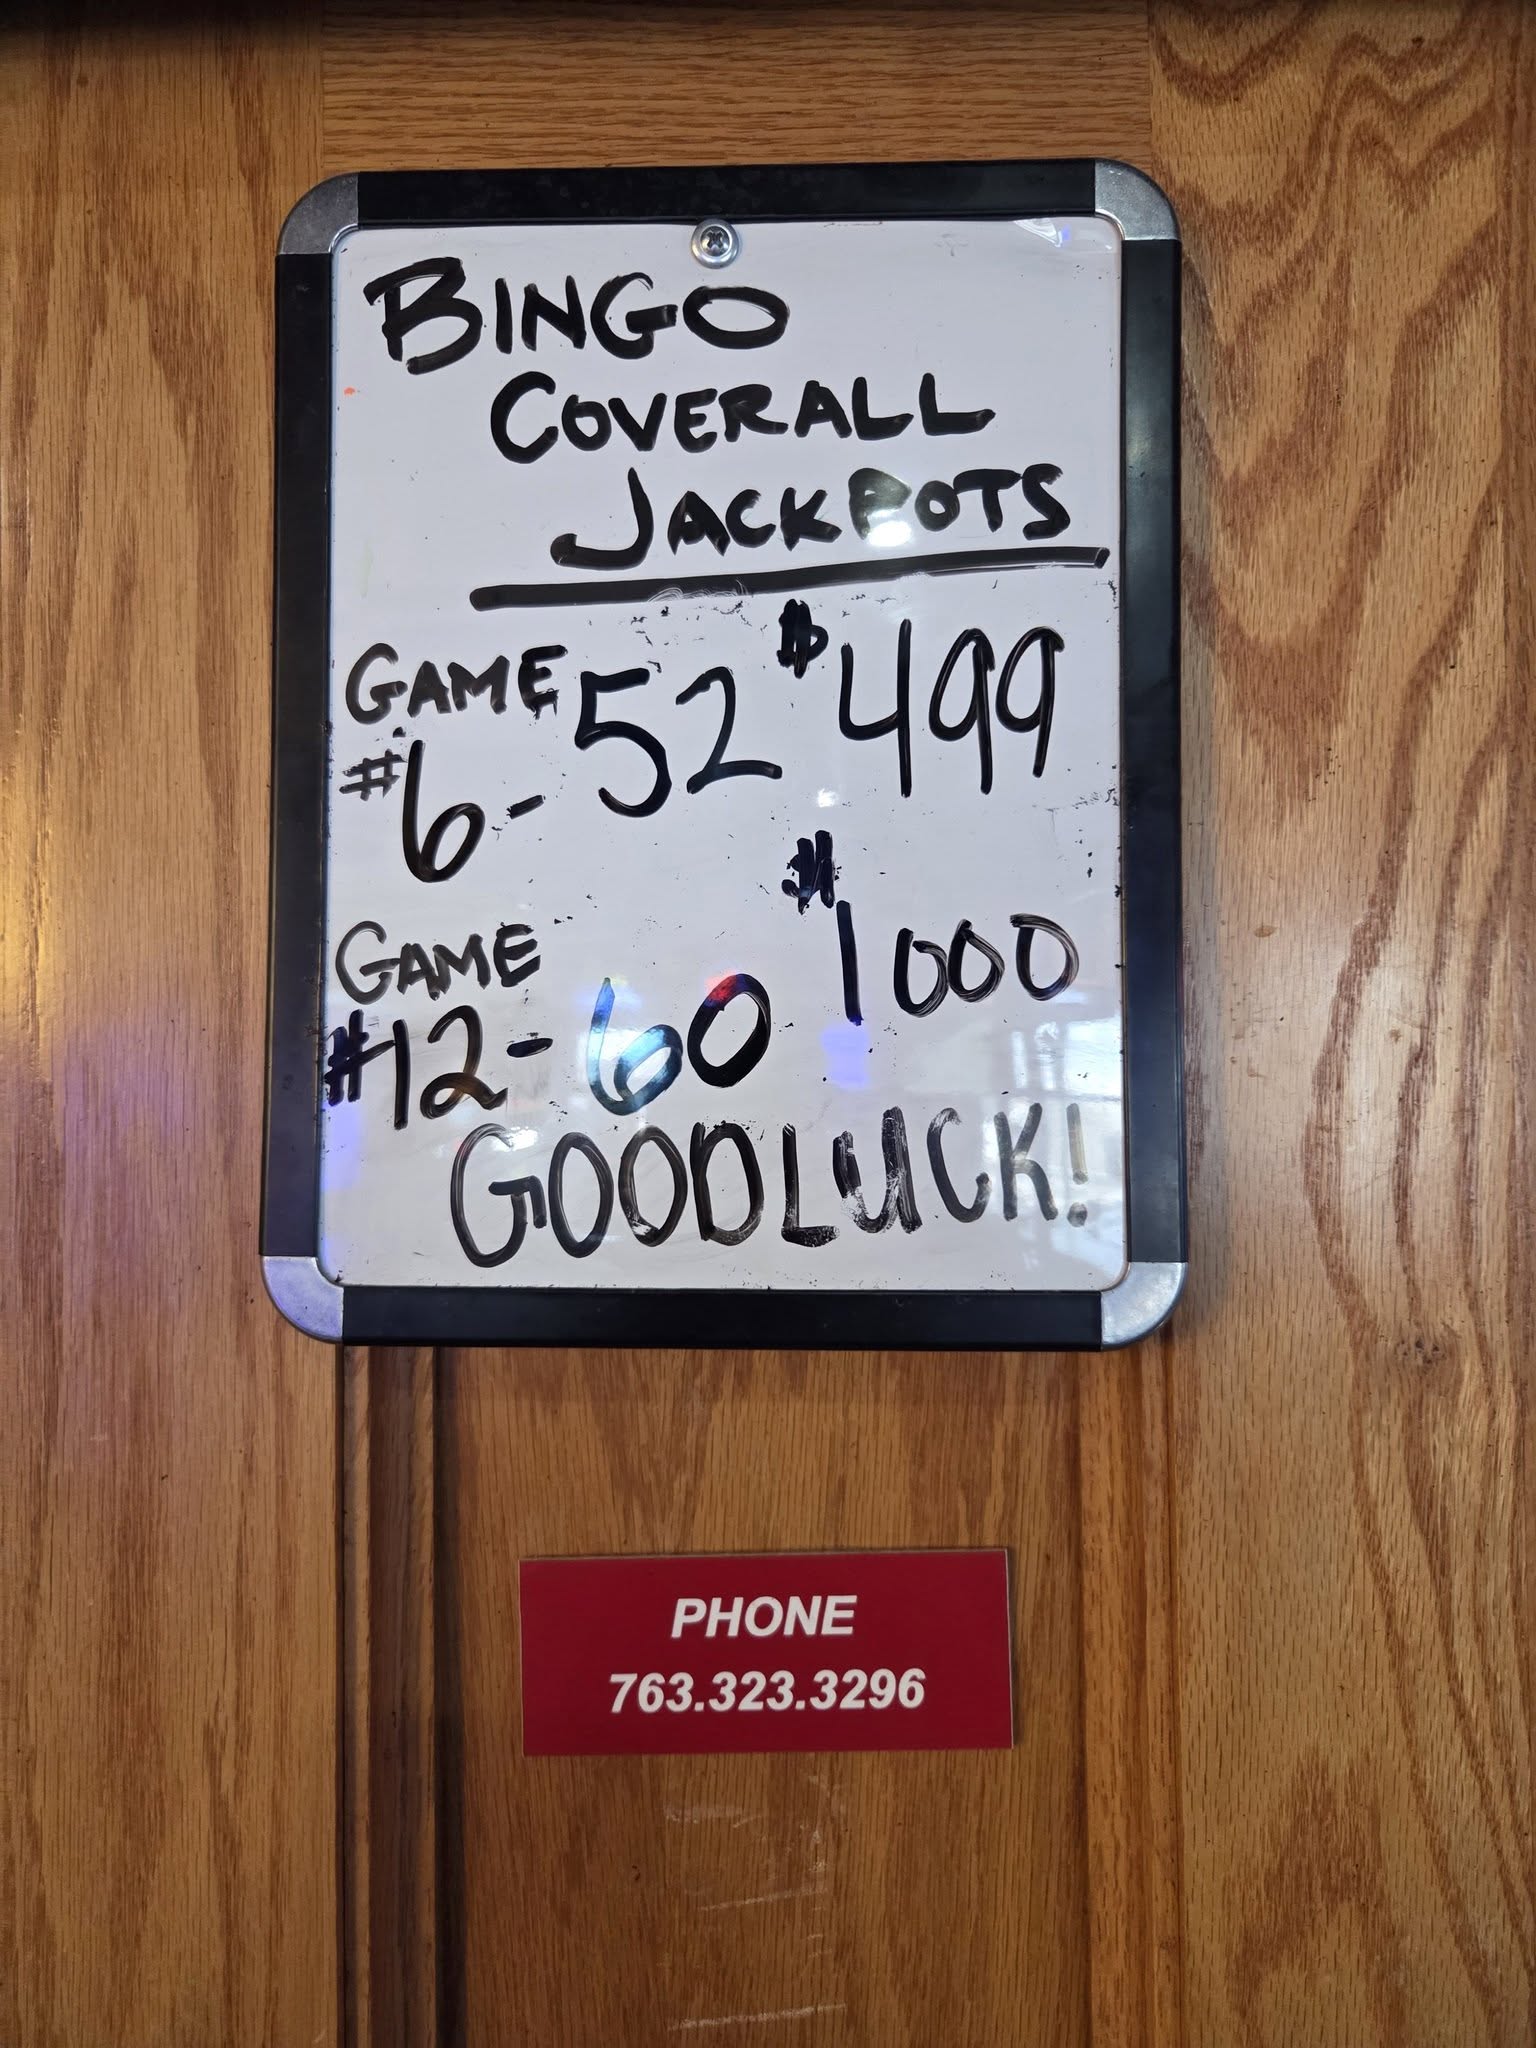 BINGO
COVERALL
JACKPOTS
GAME
#6 - 52 $499
GAME
#12 - 60 $1000
GOOD LUCK!
PHONE
763.323.3296